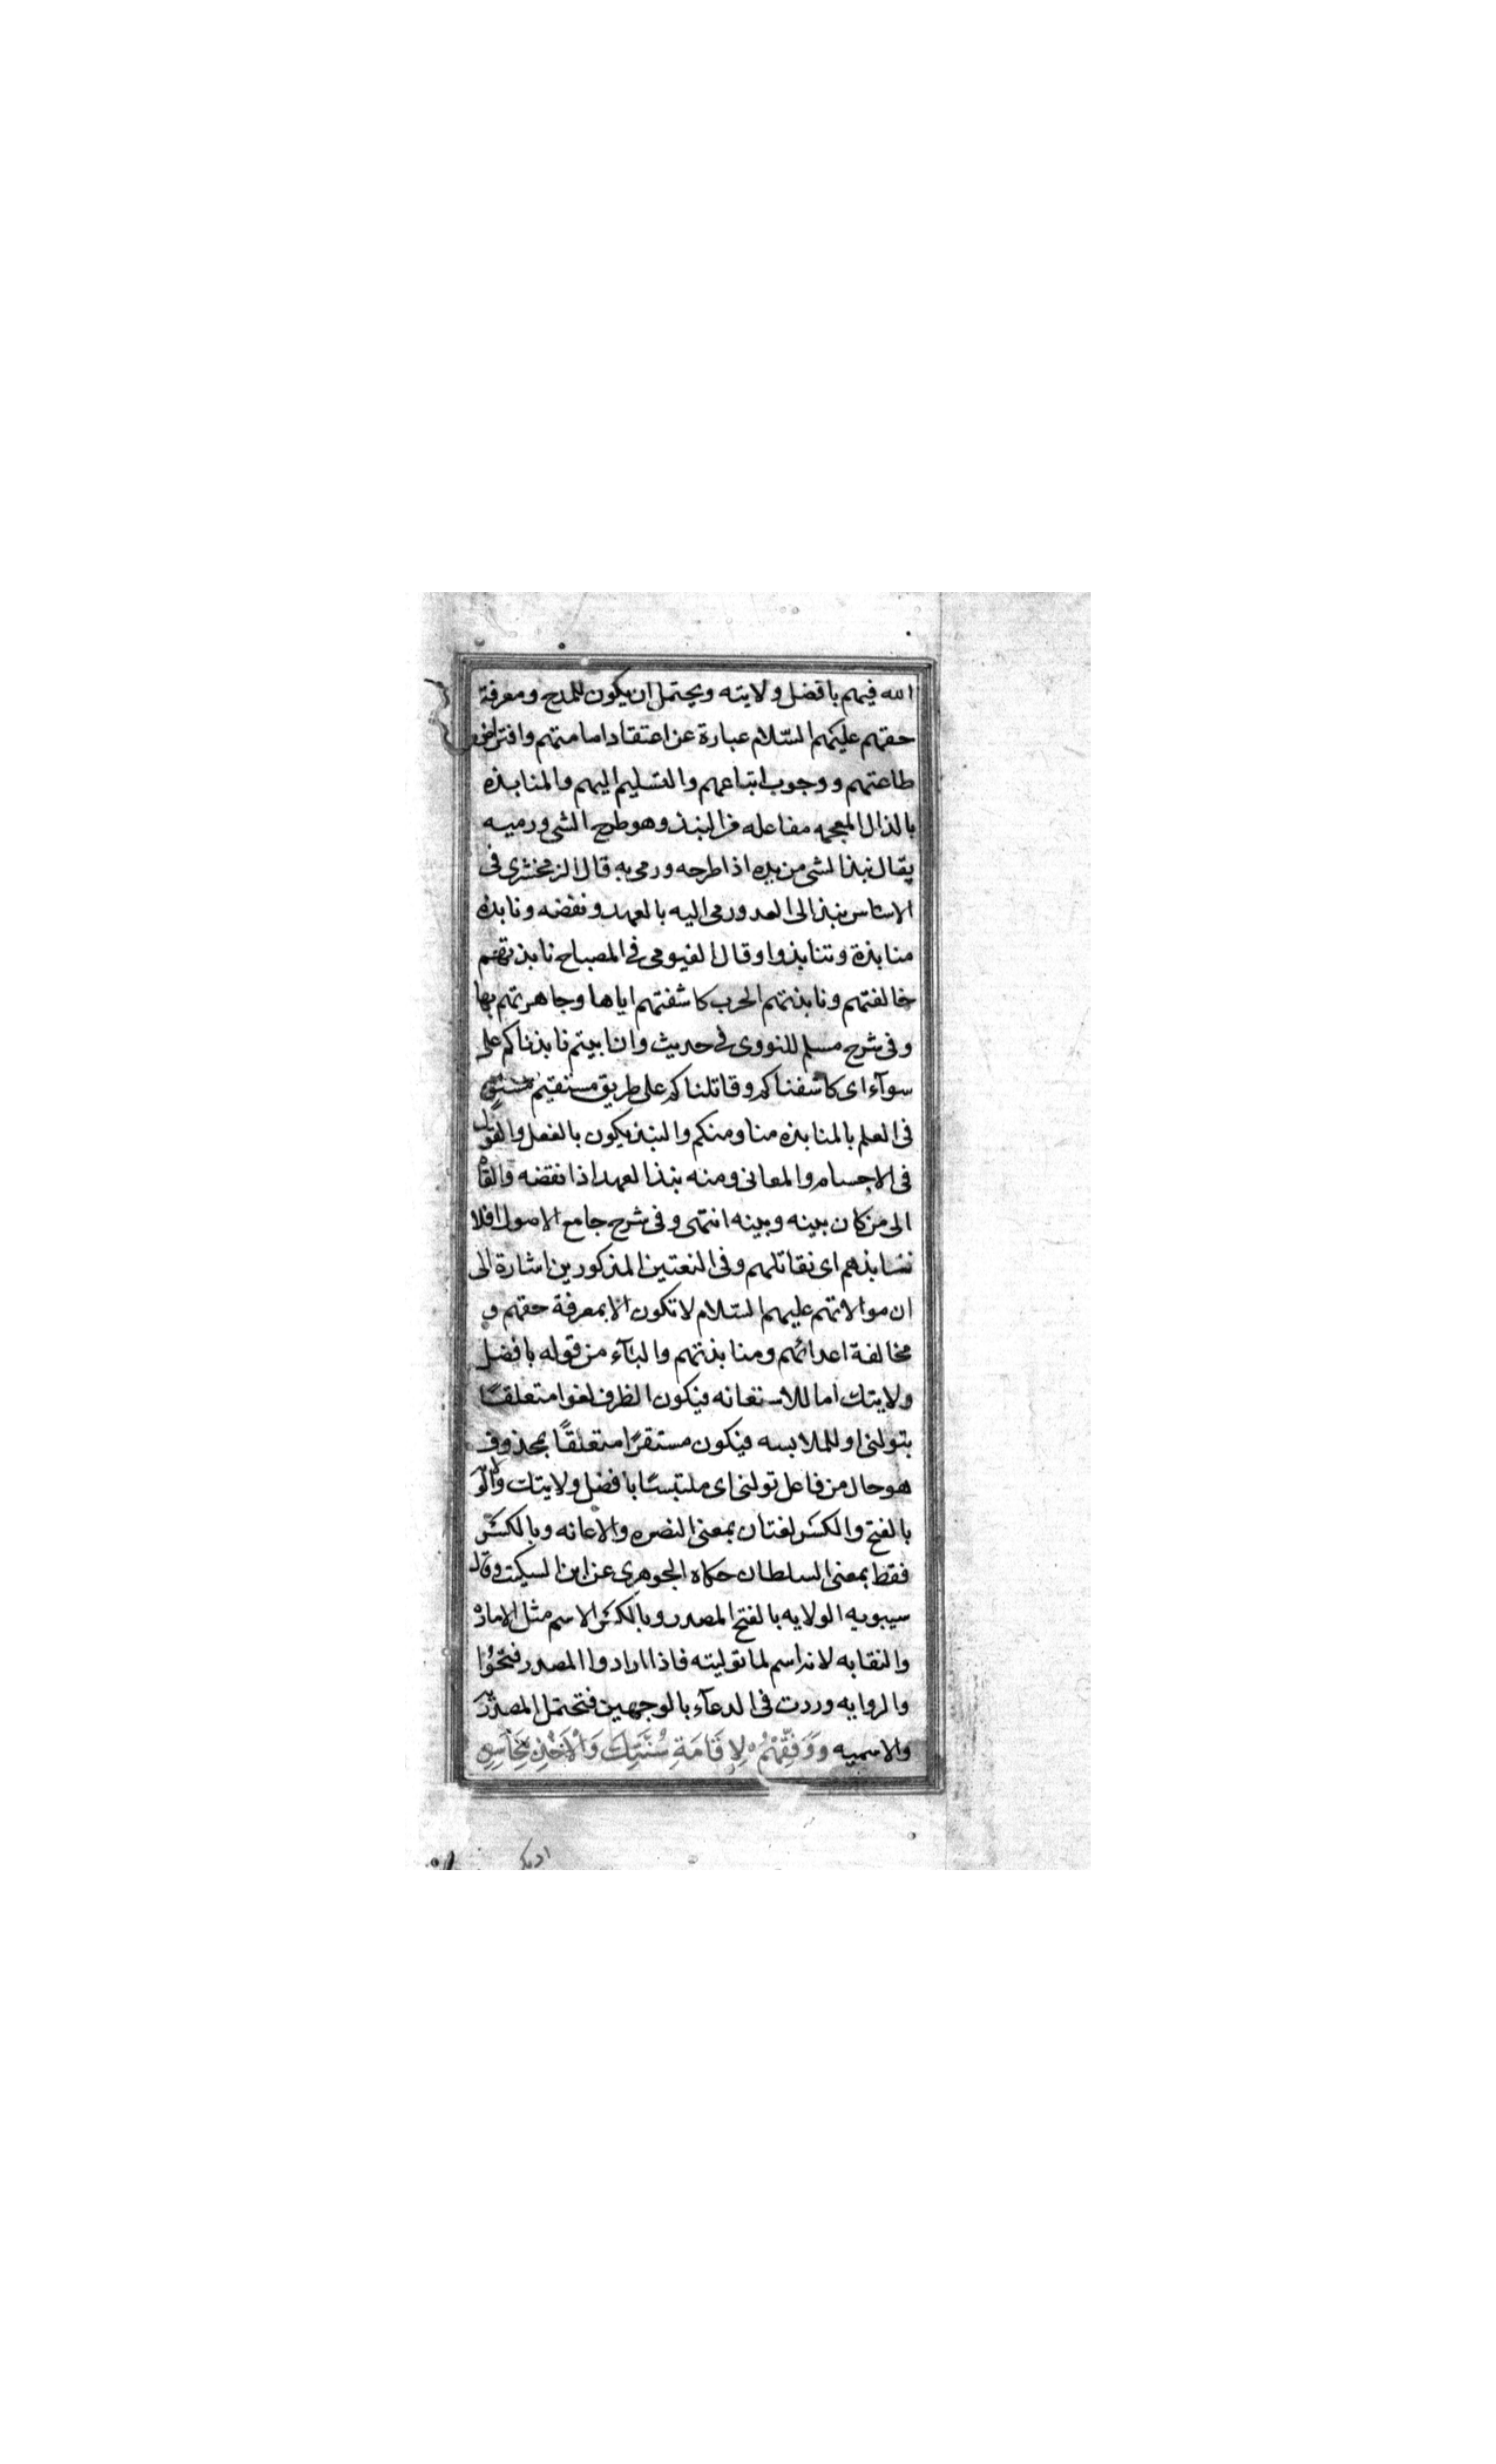 الله فيهم بافضل ولايته ويحتمل ان يكون للمدح ومعرفة
حقهم عليهم السّلام عبارة عن اعتقاد امامتهم وافتراض
طاعتهم ووجوب اتباعهم والتسليم اليهم والمنابذه
بالذال المعجمه مفاعله من النبذ وهو طرح الشى ورميه
يقال نبذ الشى من يده اذا طرحه ورمى به قال الزمخشرى فى
الاساس نبذ الى العدو رمى اليه بالعهد ونقضه ونابذه
منابذة وتنابذوا وقال الفيومى فى المصباح نابذتهم
خالفتهم ونابذتهم الحرب كاشفتهم اياها وجاهرتهم بها
وفى شرح مسلم للنووى فى حديث وان ابيتم نابذناكم على
سوآء اى كاشفناكم وقاتلناكم على طريق مستقيم مستوٍ
فى العلم بالمنابذه منا ومنكم والنبذ يكون بالفعل والقول
فى الاجسام والمعانى ومنه نبذ العهد اذا نقضه والقاه
الى من كان بينه وبينه انتهى وفى شرح جامع الاصول افلا
ننابذهم اى نقاتلهم وفى النعتين المذكورين اشارة الى
ان موالاتهم عليهم السّلام لا تكون الا بمعرفة حقهم و
مخالفة اعدائهم ومنابذتهم والبآء من قوله بافضل
ولايتك اما للاستعانه فيكون الظرف لغوا متعلقًا
بتولنى او للملابسه فيكون مستقرًا متعلقًا بمحذوف
هو حال من فاعل تولنى اى ملتبسًا بافضل ولايتك والولايه
بالفتح والكسر لغتان بمعنى النصره والاعانه وبالكسر
فقط بمعنى السلطان حكاه الجوهرى عن ابن السكيت وقال
سيبويه الولايه بالفتح المصدر وبالكسر الاسم مثل الاماره
والنقابه لانه اسم لما توليته فاذا ارادوا المصدر فتحوُا
والروايه وردت فى الدعآء بالوجهين فتحتمل المصدريه
والاسميه ووَفِّقْهُمْ لِاِقَامَةِ سُنَّتِكَ وَالْاَخْذِ بِمَحَاسِنِ